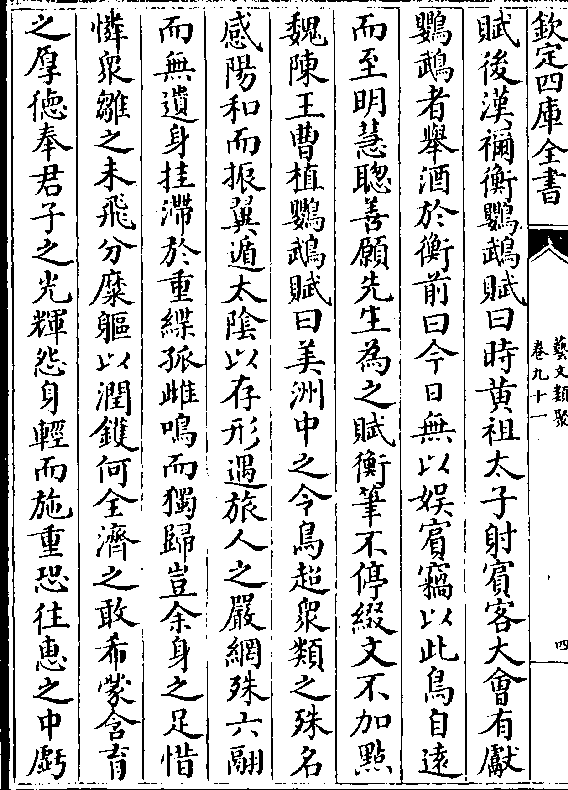 欽定四庫全書
藝文類聚
卷九十一
四
賦後漢禰衡鸚鵡賦曰時黄祖太子射賓客大會有獻
鸚鵡者舉酒於衡前曰今日無以娛賓竊以此鳥自逺
而至明慧聰善願先生為之賦衡筆不停綴文不加點
魏陳王曹植鸚鵡賦曰美洲中之令鳥超衆類之殊名
感陽和而振翼遁太陰以存形遇旅人之嚴網殊六翮
而無遺身挂滯於重緤孤雌鳴而獨歸豈余身之足惜
憐衆雛之未飛分糜軀以潤鑊何全濟之敢希蒙含育
之厚徳奉君子之光輝怨身輕而施重恐往恵之中虧